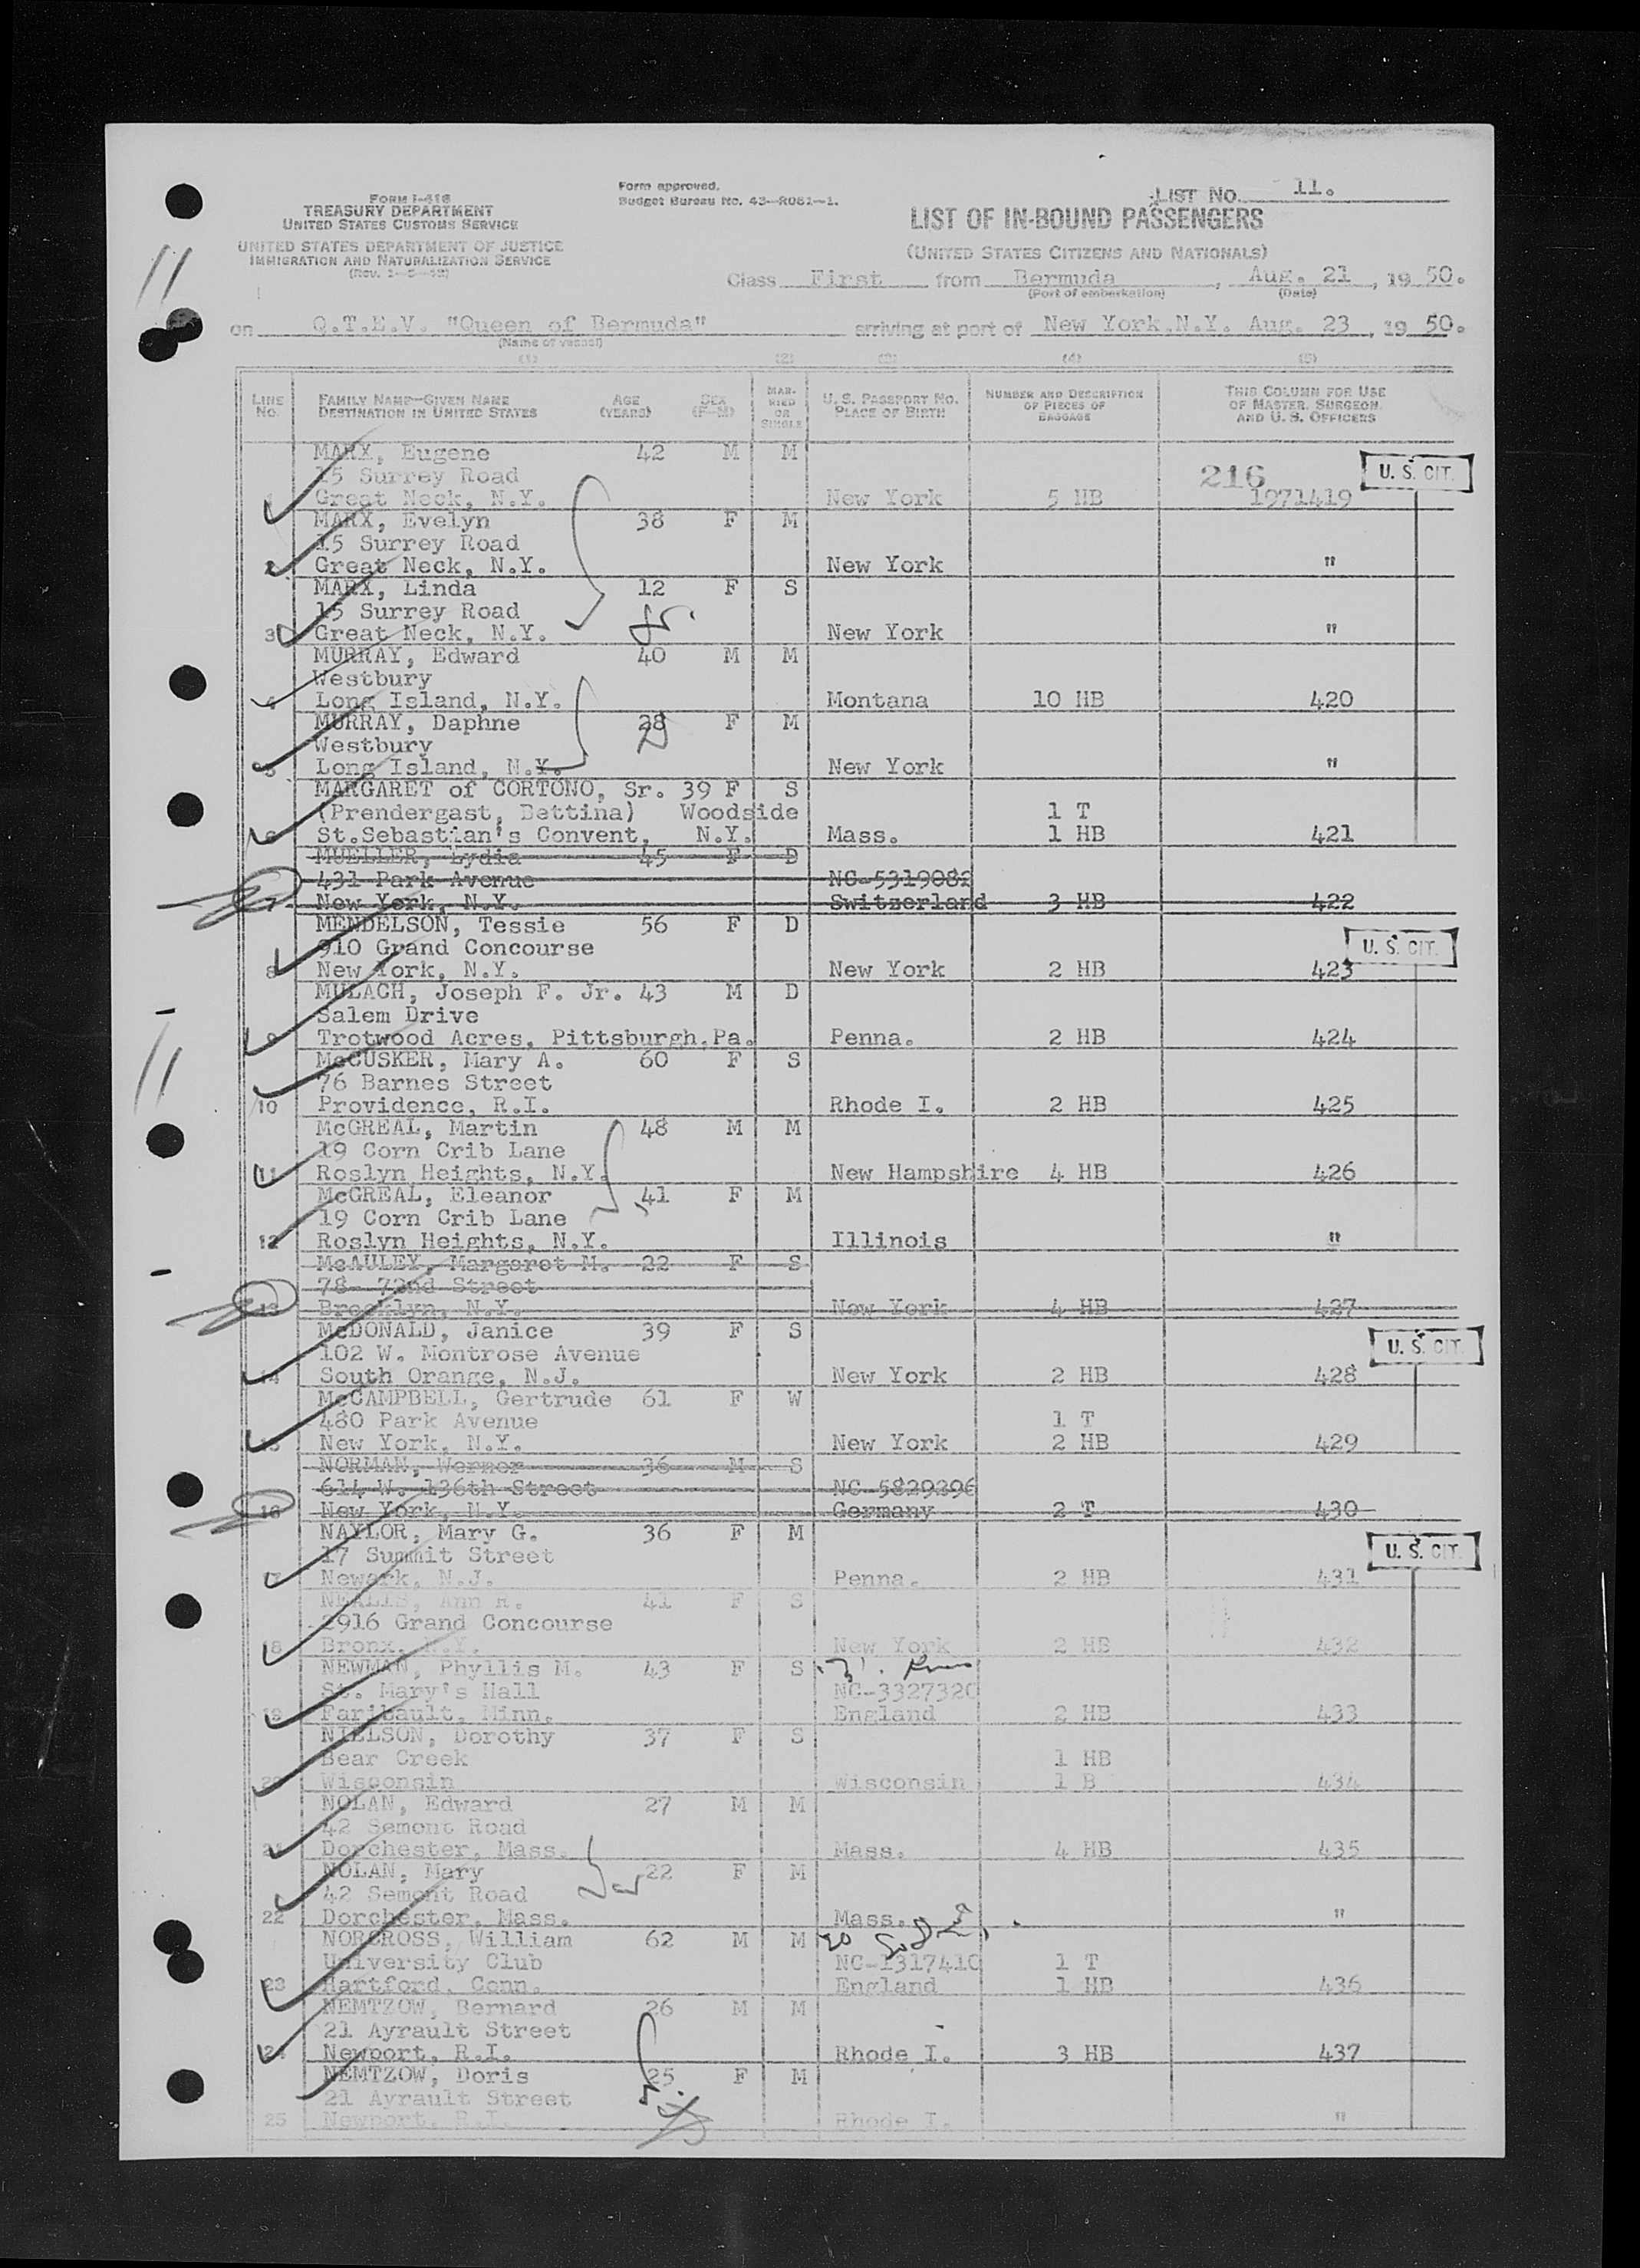 Form I-416
TREASURY DEPARTMENT
UNITED STATES CUSTOMS SERVICE
UNITED STATES DEPARTMENT OF JUSTICE
IMMIGRATION AND NATURALIZATION SERVICE
Form approved.
Budget Bureau No. 43-R081-1.
LIST NO. 11.
LIST OF IN-BOUND PASSENGERS
(UNITED STATES CITIZENS AND NATIONALS)
11
Class First from Bermuda, Aug. 21, 1950.
(Port of embarkation) (Date)
on Q.T.E.V. "Queen of Bermuda" arriving at port of New York, N.Y. Aug. 23, 1950.
(Name of vessel)
(1) (2) (3) (4) (5)
LINE No. FAMILY NAME—GIVEN NAME DESTINATION IN UNITED STATES AGE (YEARS) SEX (F-M) MARRIED OR SINGLE U. S. PASSPORT NO. PLACE OF BIRTH NUMBER AND DESCRIPTION OF PIECES OF BAGGAGE THIS COLUMN FOR USE OF MASTER, SURGEON, AND U. S. OFFICERS
MARX, Eugene 42 M M
15 Surrey Road 216 U. S. CIT.
1 Great Neck, N.Y. New York 5 HB 1971419
MARX, Evelyn 38 F M
15 Surrey Road
2 Great Neck, N.Y. New York "
MARX, Linda 12 F S
15 Surrey Road
3 Great Neck, N.Y. New York "
MURRAY, Edward 40 M M
Westbury
4 Long Island, N.Y. Montana 10 HB 420
MURRAY, Daphne 28 F M
Westbury
5 Long Island, N.Y. New York "
MARGARET of CORTONO, Sr. 39 F S
(Prendergast, Bettina) Woodside 1 T
6 St.Sebastian's Convent, N.Y. Mass. 1 HB 421
MUELLER, Lydia 45 F D
431 Park Avenue NC-5319082
7 New York, N.Y. Switzerland 3 HB 422
MENDELSON, Tessie 56 F D
910 Grand Concourse U. S. CIT.
8 New York, N.Y. New York 2 HB 423
MULACH, Joseph F. Jr. 43 M D
Salem Drive
9 Trotwood Acres, Pittsburgh.Pa. Penna. 2 HB 424
11
McCUSKER, Mary A. 60 F S
76 Barnes Street
10 Providence, R.I. Rhode I. 2 HB 425
McGREAL, Martin 48 M M
19 Corn Crib Lane
11 Roslyn Heights, N.Y. New Hampshire 4 HB 426
McGREAL, Eleanor 41 F M
19 Corn Crib Lane
12 Roslyn Heights, N.Y. Illinois "
McAULEY, Margaret M. 22 F S
78- 72nd Street
13 Brooklyn, N.Y. New York 4 HB 427
McDONALD, Janice 39 F S
102 W. Montrose Avenue U. S. CIT.
14 South Orange, N.J. New York 2 HB 428
McCAMPBELL, Gertrude 61 F W
480 Park Avenue 1 T
15 New York, N.Y. New York 2 HB 429
NORMAN, Werner 36 M S
614 W. 136th Street NC-5829396
16 New York, N.Y. Germany 2 T 430
NAYLOR, Mary G. 36 F M
17 Summit Street U. S. CIT.
17 Newark, N.J. Penna. 2 HB 431
Ann R. 41 F S
2916 Grand Concourse
18 Bronx, N.Y. New York 2 HB 432
NEWMAN, Phyllis M. 43 F S
St. Mary's Hall NC-3327320
19 Faribault, Minn. England 2 HB 433
NIELSON, Dorothy 37 F S
Bear Creek 1 HB
20 Wisconsin Wisconsin 1 B 434
NOLAN, Edward 27 M M
42 Semont Road
21 Dorchester, Mass. Mass. 4 HB 435
NOLAN, Mary 22 F M
42 Semont Road
22 Dorchester, Mass. Mass. "
NORCROSS, William 62 M M
University Club NC-1317410 1 T
23 Hartford, Conn. England 1 HB 436
NEMTZOW, Bernard 26 M M
21 Ayrault Street
24 Newport, R.I. Rhode I. 3 HB 437
NEMTZOW, Doris 25 F M
21 Ayrault Street
25 Newport, R.I. Rhode I. "